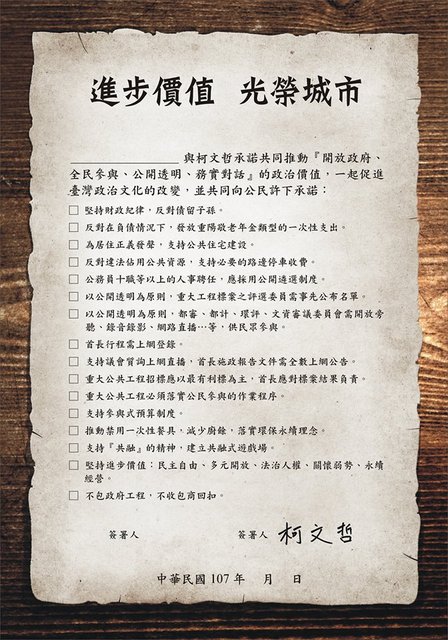 進步價值 光榮城市
＿＿＿＿＿＿＿＿與柯文哲承諾共同推動『開放政府、
全民參與、公開透明、務實對話』的政治價值，一起促進
臺灣政治文化的改變，並共同向公民許下承諾：
□ 堅持財政紀律，反對債留子孫。
□ 反對在負債情況下，發放重陽敬老年金類型的一次性支出。
□ 為居住正義發聲，支持公共住宅建設。
□ 反對違法佔用公共資源，支持必要的路邊停車收費。
□ 公務員十職等以上的人事聘任，應採用公開遴選制度。
□ 以公開透明為原則，重大工程標案之評選委員需事先公布名單。
□ 以公開透明為原則，都審、都計、環評、文資審議委員會需開放旁
聽、錄音錄影、網路直播…等，供民眾參與。
□ 首長行程需上網登錄。
□ 支持議會質詢上網直播，首長施政報告文件需全數上網公告。
□ 重大公共工程招標應以最有利標為主，首長應對標案結果負責。
□ 重大公共工程必須落實公民參與的作業程序。
□ 支持參與式預算制度。
□ 推動禁用一次性餐具，減少廚餘，落實環保永續理念。
□ 支持『共融』的精神，建立共融式遊戲場。
□ 堅持進步價值：民主自由、多元開放、法治人權、關懷弱勢、永續
經營。
□ 不包政府工程，不收包商回扣。
簽署人 簽署人 柯文哲
中華民國 107 年 月 日